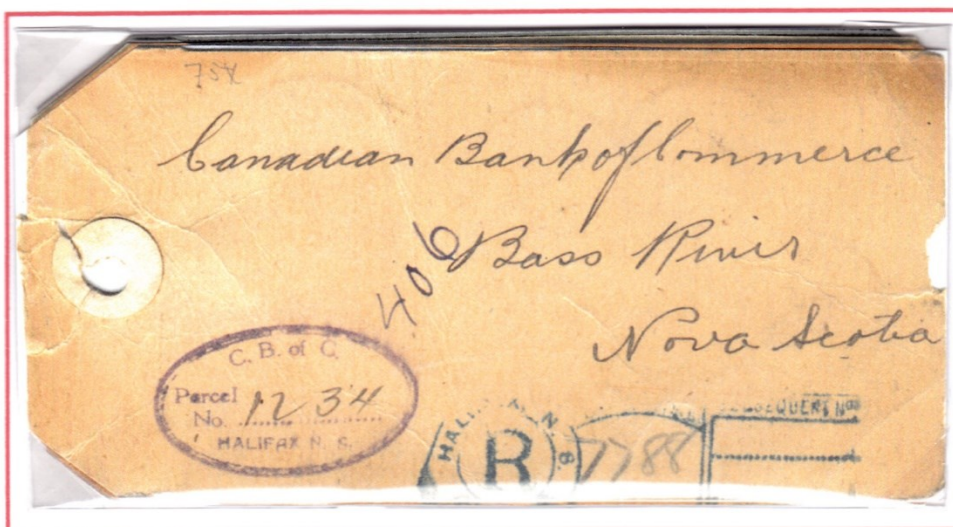 75¢
Canadian Bank of Commerce
406
Bass River
Nova Scotia
C. B. of C.
Parcel
No. 1234
HALIFAX N. S.
HALIFAX N. S.
R
7788
SUBSEQUENT Nos